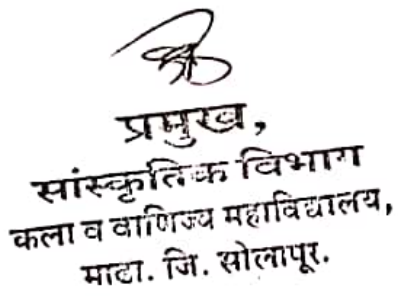 प्रमुख,
सांस्कृतिक विभाग
कला व वाणिज्य महाविद्यालय,
माढा. जि. सोलापूर.